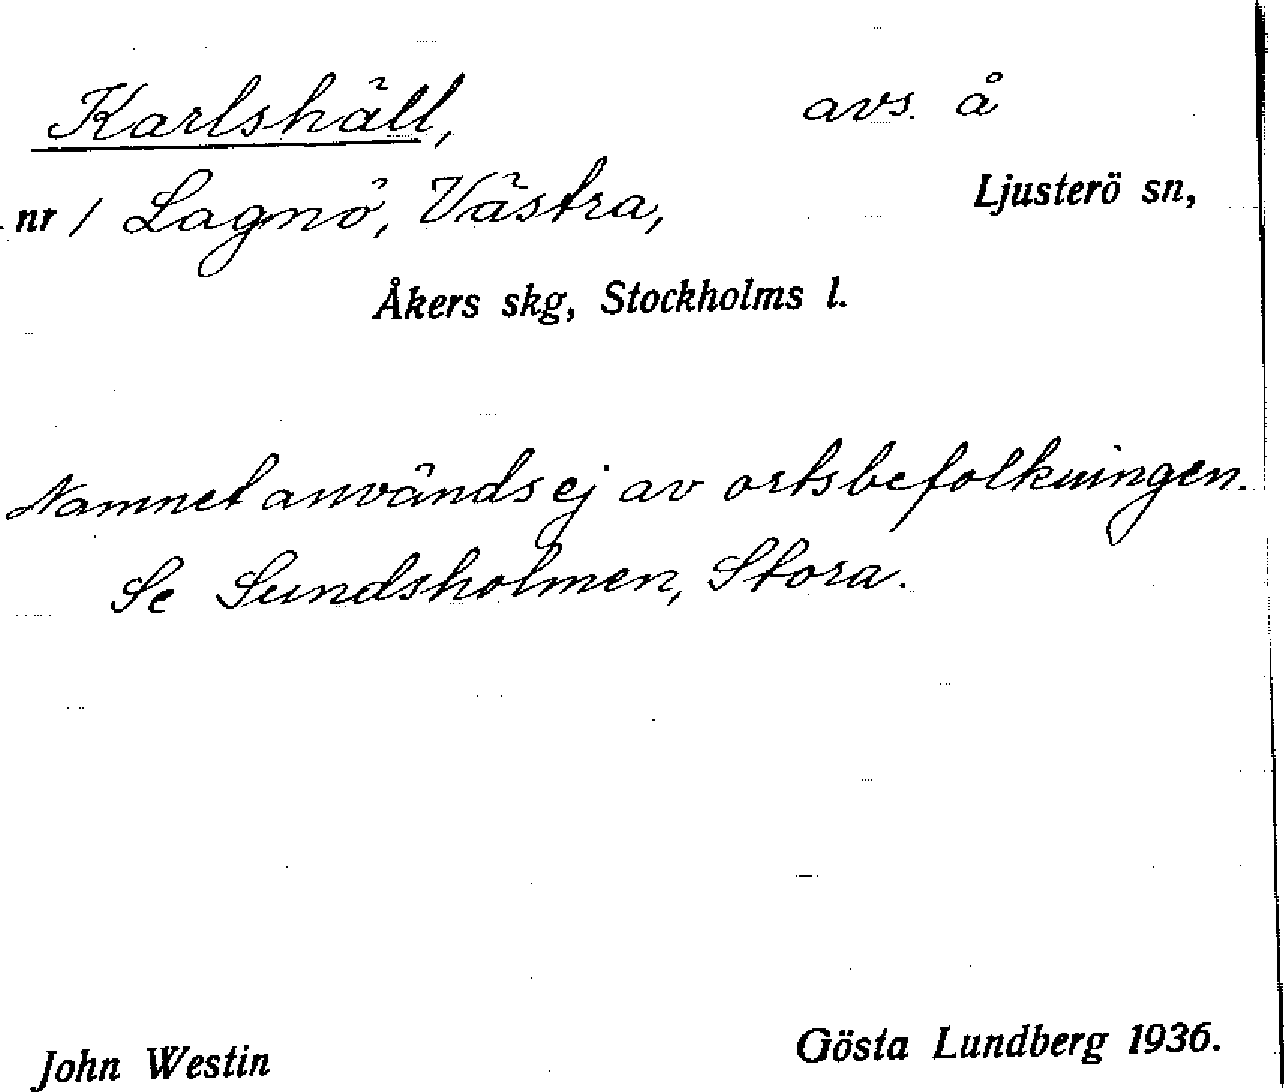 Karlshäll, avs. å
nr 1 Lagnö, Västra, Ljusterö sn,
Åkers skg, Stockholms l.
Namnet används ej av ortsbefolkningen.
Se Sundsholmen, Stora.
John Westin Gösta Lundberg 1936.